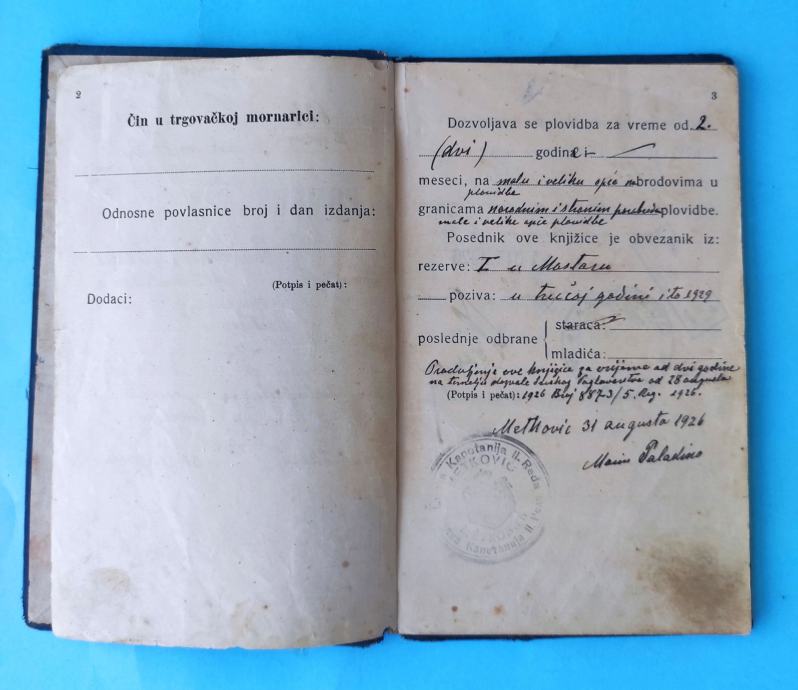 2
Čin u trgovačkoj mornarici:
Odnosne povlasnice broj i dan izdanja:
(Potpis i pečat):
Dodaci:
3
Dozvoljava se plovidba za vreme od 2.
(dvi) godine i
meseci, na malu i veliku opću brodovima u
plovidbe
granicama narodnim i stranim plovidbe.
male i velike opće plovidbe
Posednik ove knjižice je obvezanik iz:
rezerve: I u Mostaru
poziva: u trećoj godini i to 1929
poslednje odbrane
staraca:
mladića:
Produljenje ove knjižice za vrijeme od dvi godine
na temelju od 28 augusta
(Potpis i pečat): 1926 Broj 8873/5. 1926.
Metković 31 augusta 1926
Paladino
Kapetanija II. Reda
METKOVIĆ
Kapetanija II.